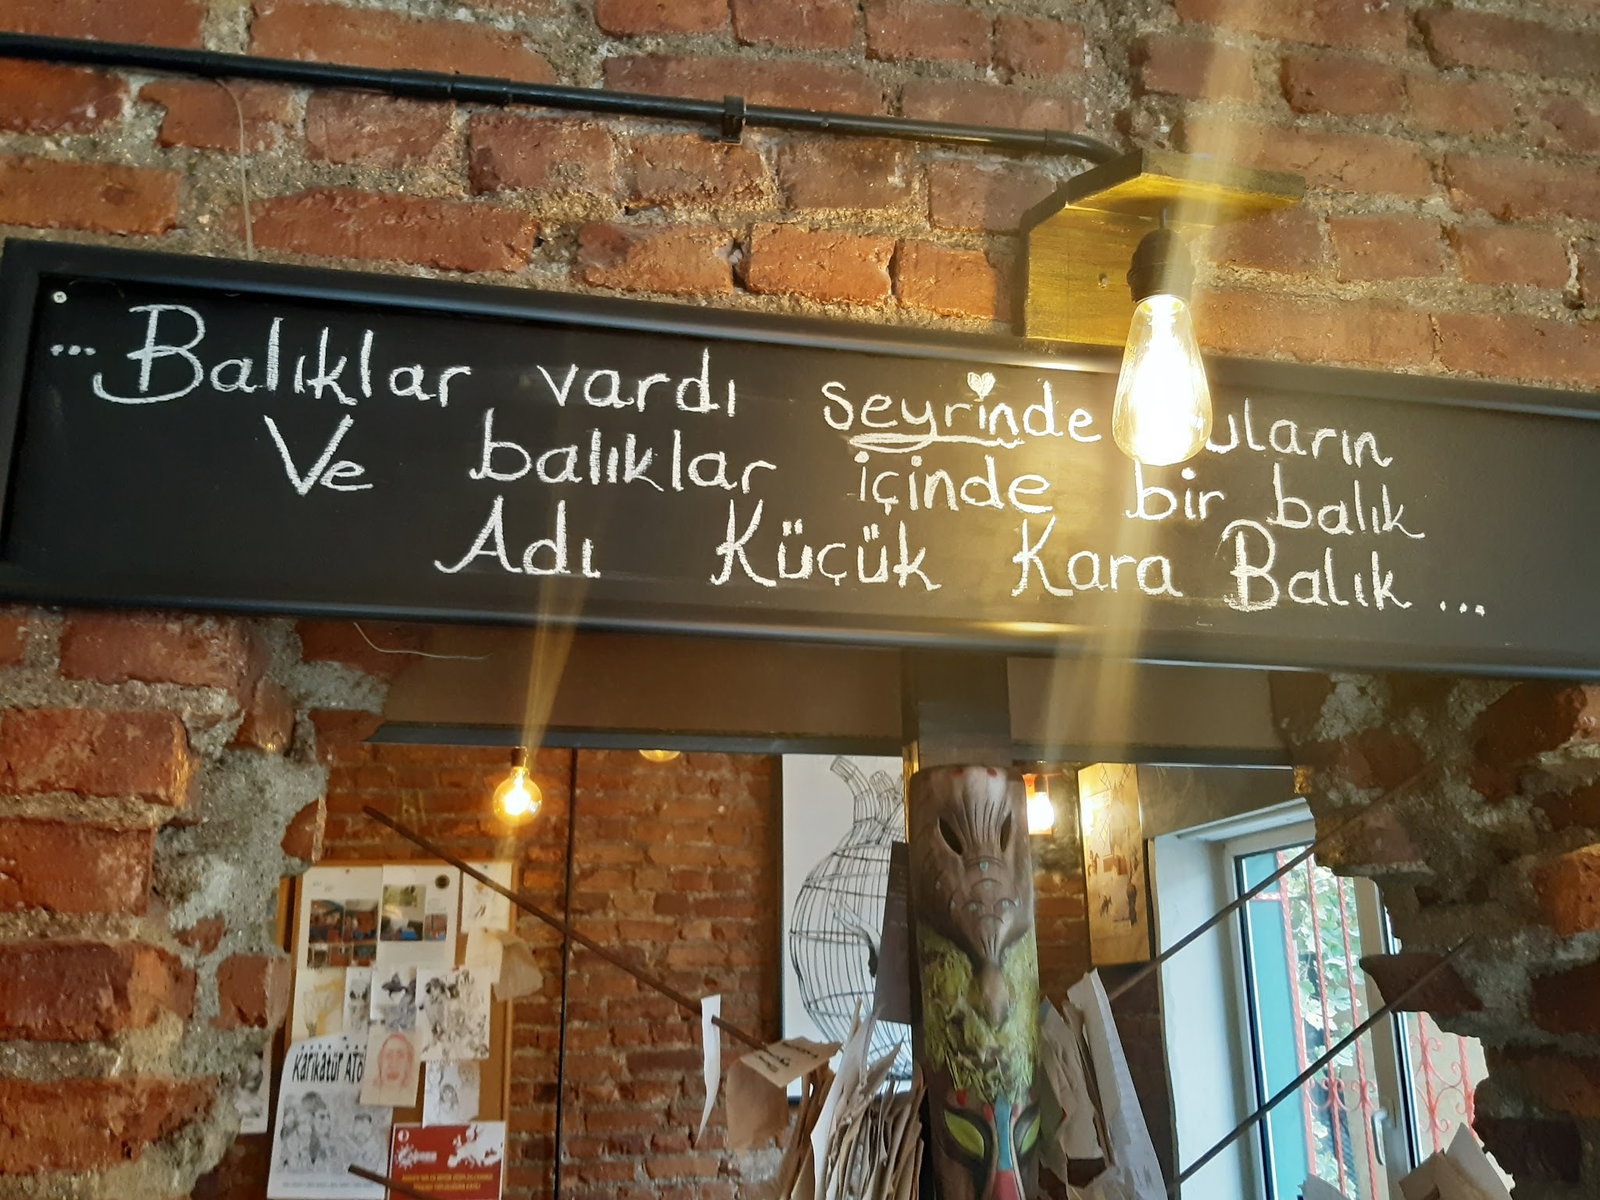 ...Balıklar vardı seyrinde suların
Ve balıklar içinde bir balık
Adı Küçük Kara Balık...
Karikatür Atö